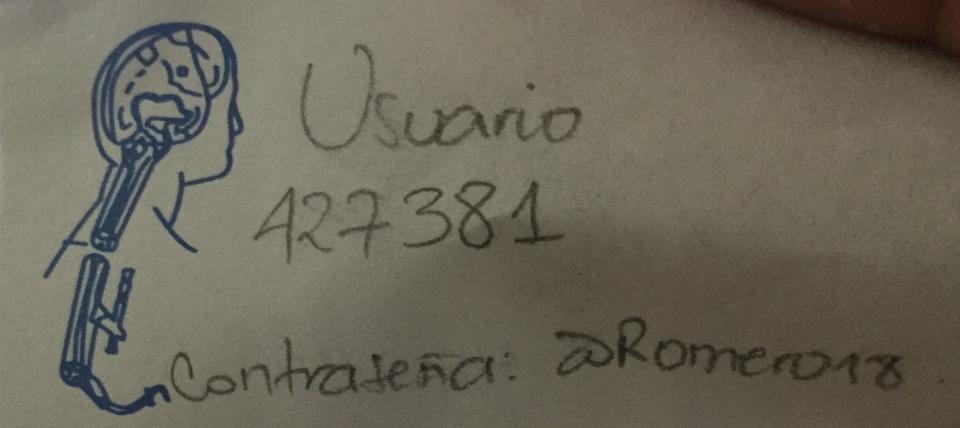 Usuario
427381
Contraseña: @Romero18.